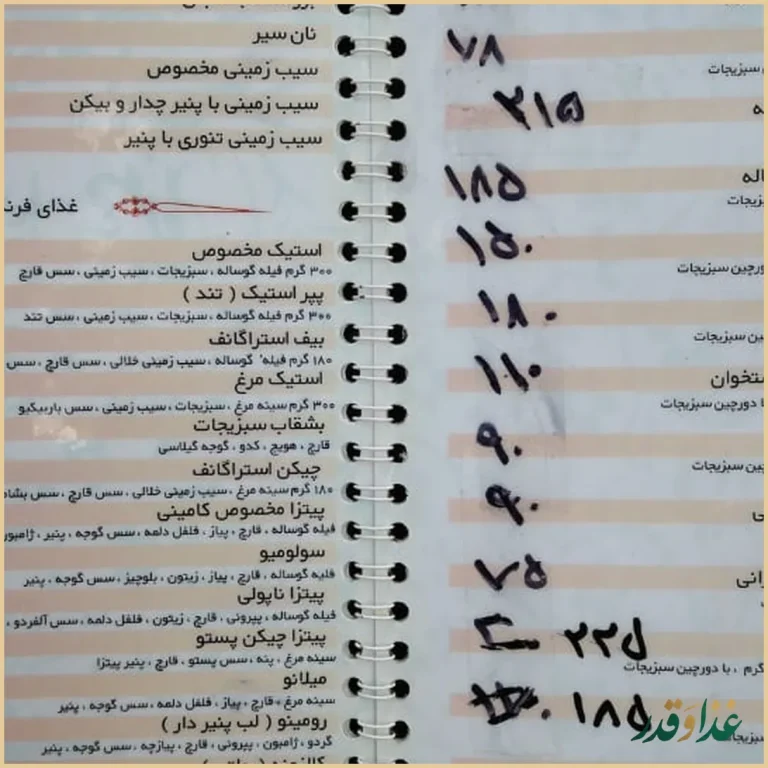 نان سیر
سیب زمینی مخصوص
سیب زمینی با پنیر چدار و بیکن
سیب زمینی تنوری با پنیر
غذای فرن
استیک مخصوص
۳۰۰ گرم فیله گوساله ، سبزیجات ، سیب زمینی ، سس قارچ
پپر استیک ( تند )
۳۰۰ گرم فیله گوساله ، سبزیجات ، سیب زمینی ، سس تند
بیف استراگانف
۱۸۰ گرم فیله گوساله ، سیب زمینی خلالی ، سس قارچ ، سس
استیک مرغ
۳۰۰ گرم سینه مرغ ، سبزیجات ، سیب زمینی ، سس باربیکیو
بشقاب سبزیجات
قارچ ، هویج ، کدو ، گوجه گیلاسی
چیکن استراگانف
۱۸۰ گرم سینه مرغ ، سیب زمینی خلالی ، سس قارچ ، سس بشام
پیتزا مخصوص کامینی
فیله گوساله ، قارچ ، پیاز ، فلفل دلمه ، سس گوجه ، پنیر ، ژامبون
سولومیو
فلیه گوساله ، قارچ ، پیاز ، زیتون ، بلوچیز ، سس گوجه ، پنیر
پیتزا ناپولی
فیله گوساله ، پپرونی ، قارچ ، زیتون ، فلفل دلمه ، سس آلفردو ،
پیتزا چیکن پستو
سینه مرغ ، پنه ، سس پستو ، قارچ ، پنیر پیتزا
میلانو
سینه مرغ ، قارچ ، پیاز ، فلفل دلمه ، سس گوجه ، پنیر
رومینو ( لب پنیر دار )
گردو ، ژامبون ، پپرونی ، قارچ ، پیازچه ، سس گوجه ، پنیر
۷۸
سبزیجات
۳۱۵
۱۸۵
اله
زیجات
۱۵۰
ورچین سبزیجات
۱۸۰
ین سبزیجات
۱۱۰
ستخوان
ا دورچین سبزیجات
۹۰
چین سبزیجات
۹۰
ی
۷۵
رانی
۲۳۵
گرم ، با دورچین سبزیجات
۱۸۵
سبزیجات
غذا و قدر